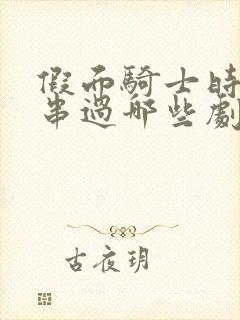 假面騎士時
串過哪些劇
古夜玥